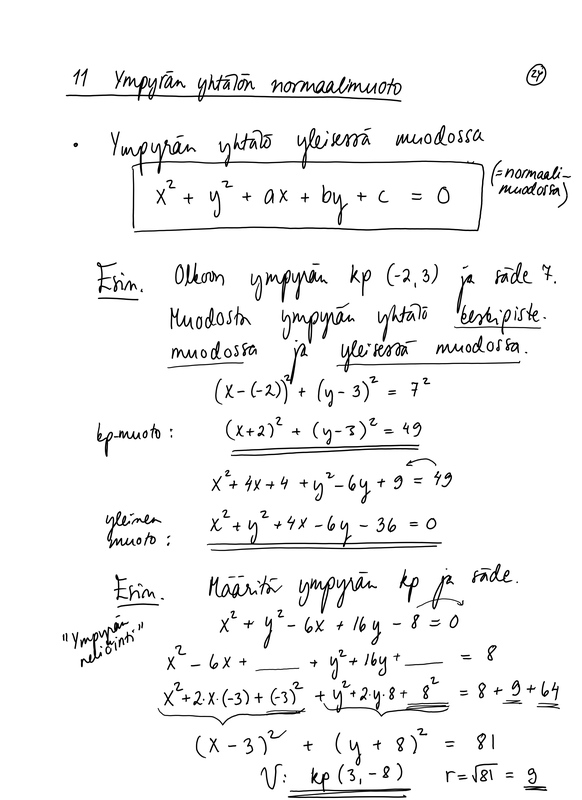 11 Ympyrän yhtälön normaalimuoto
24
• Ympyrän yhtälö yleisessä muodossa
x² + y² + ax + by + c = 0
(=normaali-
muodossa)
Esim. Olkoon ympyrän kp (-2,3) ja säde 7.
Muodosta ympyrän yhtälö keskipiste-
muodossa ja yleisessä muodossa.
(x-(-2))² + (y-3)² = 7²
kp-muoto: (x+2)² + (y-3)² = 49
x²+4x+4 +y²-6y+9 = 49
yleinen
muoto: x²+y²+4x-6y-36 = 0
Esim. Määritä ympyrän kp ja säde.
x² + y² - 6x + 16y - 8 = 0
"Ympyrän
neliöinti"
x² - 6x + ___ + y²+16y+ ___ = 8
x²+2·x·(-3)+(-3)² + y²+2·y·8+ 8² = 8+9+64
(x-3)² + (y+8)² = 81
V: kp (3,-8) r=√81 = 9